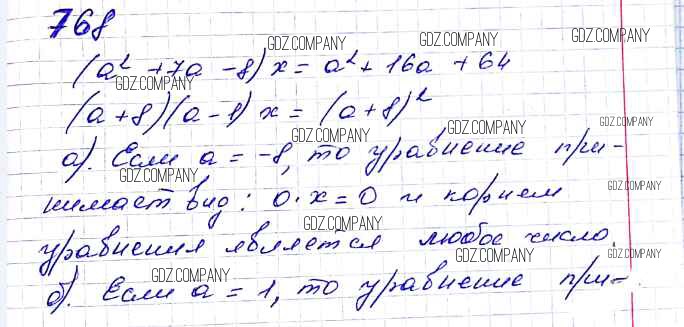 768
(a² + 7a - 8) x = a² + 16a + 64
(a + 8)(a - 1) x = (a + 8)²
а). Если a = -8, то уравнение при-
нимает вид: 0 · x = 0 и корнем
уравнения является любое число.
б). Если a = 1, то уравнение при-
GDZ.COMPANY
GDZ.COMPANY
GDZ.COMPANY
GDZ.COMPANY
GDZ.COMPANY
GDZ.COMPANY
GDZ.COMPANY
GDZ.COMPANY
GDZ.COMPANY
GDZ.COMPANY
GDZ.COMPANY
GDZ.COMPANY
GDZ.COMPANY
GDZ.COMPANY